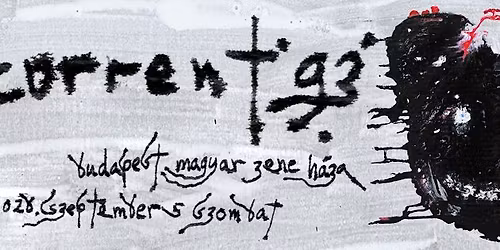 current 93
budapest, magyar zene háza
026. szeptember 5 szombat